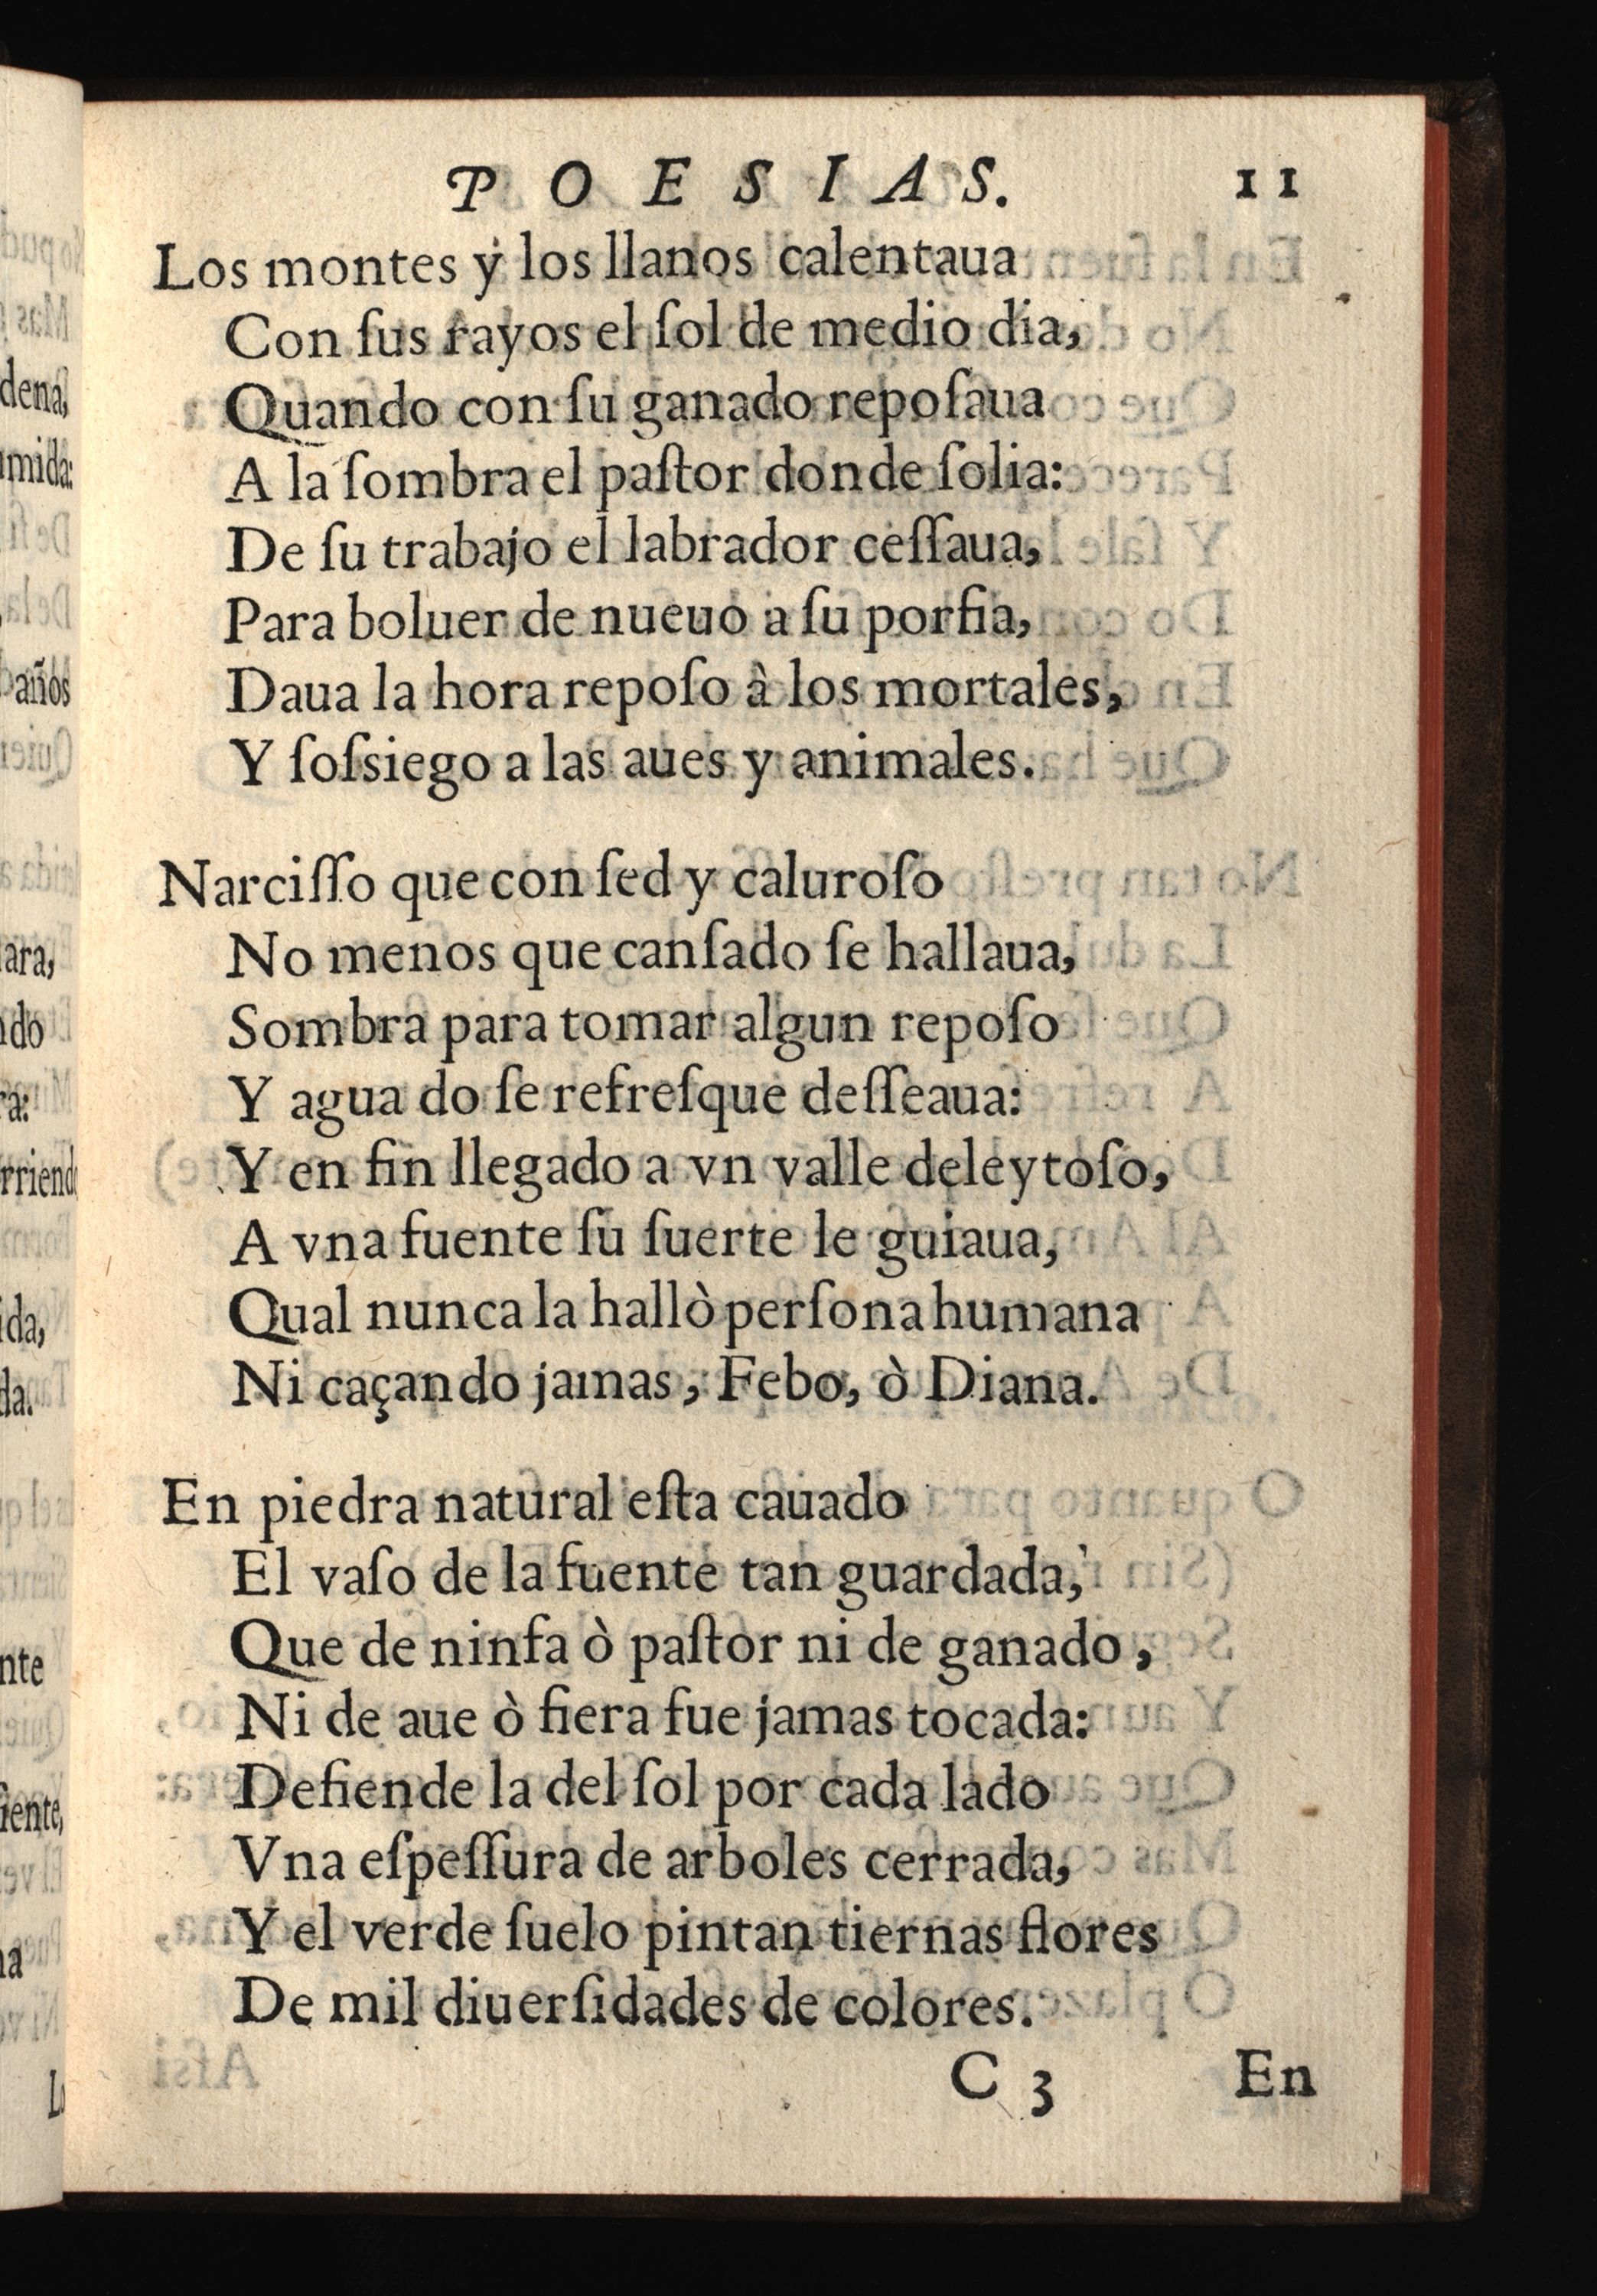 POESIAS. 11
Los montes y los llanos calentaua
Con ſus rayos el ſol de medio dia,
Quando con ſu ganado repoſaua
A la ſombra el paſtor donde ſolia:
De ſu trabajo el labrador ceſſaua,
Para boluer de nueuo a ſu porfia,
Daua la hora repoſo â los mortales,
Y ſoſsiego a las aues y animales.
Narciſſo que con ſed y caluroſo
No menos que canſado ſe hallaua,
Sombra para tomar algun repoſo
Y agua do ſe refreſque deſſeaua:
Y en fin llegado a vn valle deleytoſo,
A vna fuente ſu ſuerte le guiaua,
Qual nunca la hallò perſona humana
Ni caçando jamas, Febo, ò Diana.
En piedra natural eſta cauado
El vaſo de la fuente tan guardada,
Que de ninfa ò paſtor ni de ganado,
Ni de aue ò fiera fue jamas tocada:
Defiende la del ſol por cada lado
Vna eſpeſſura de arboles cerrada,
Y el verde ſuelo pintan tiernas flores
De mil diuerſidades de colores.
C 3 En